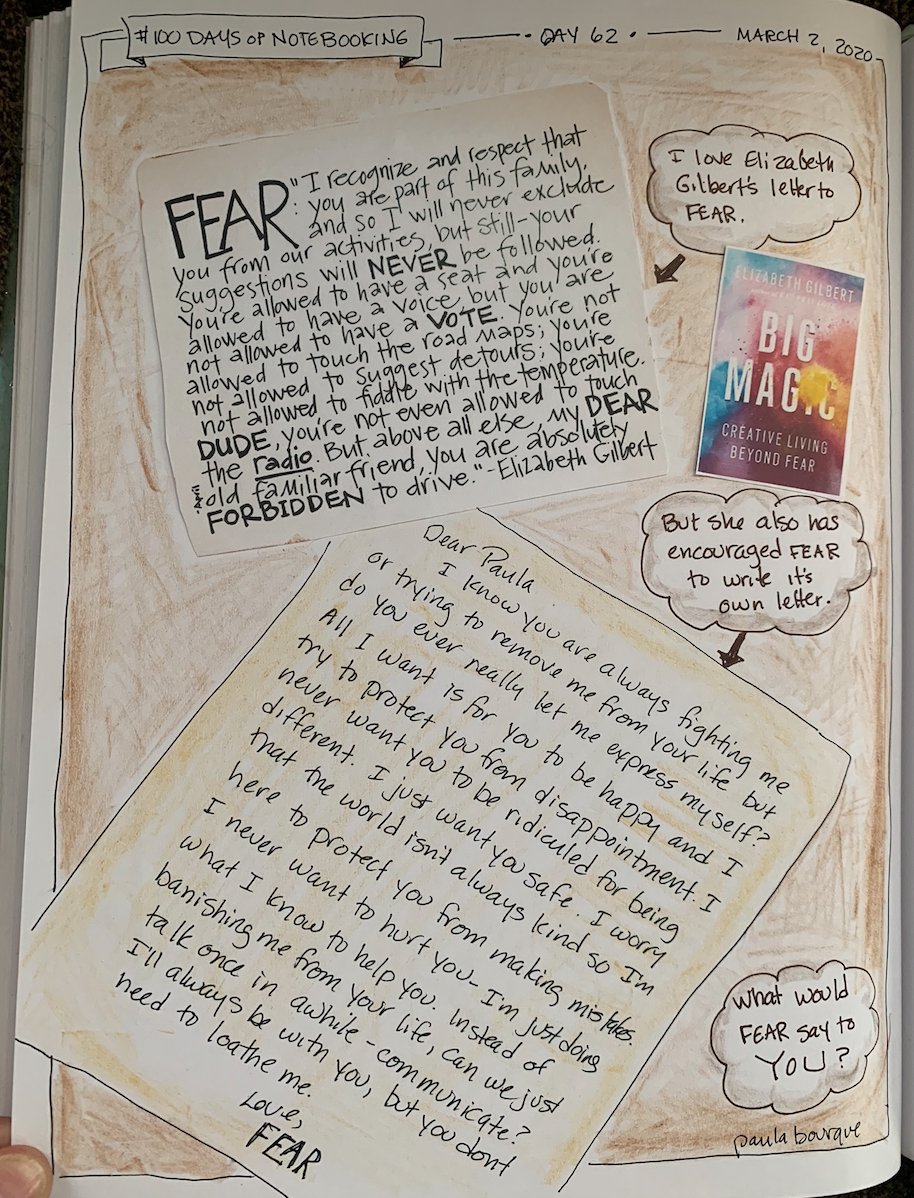 #100 DAYS OF NOTEBOOKING
DAY 62
MARCH 2, 2020
FEAR: "I recognize and respect that
you are part of this family,
and so I will never exclude
you from our activities, but still-your
suggestions will NEVER be followed.
You're allowed to have a seat and you're
allowed to have a voice, but you are
not allowed to have a VOTE. You're not
allowed to touch the road maps; you're
not allowed to suggest detours; you're
not allowed to fiddle with the temperature.
DUDE, you're not even allowed to touch
the radio. But above all else, my DEAR
old familiar friend, you are absolutely
FORBIDDEN to drive." -Elizabeth Gilbert
I love Elizabeth
Gilbert's letter to
FEAR.
ELIZABETH GILBERT
BIG
MAGIC
CREATIVE LIVING
BEYOND FEAR
But she also has
encouraged FEAR
to write it's
own letter.
Dear Paula
I know you are always fighting me
or trying to remove me from your life but
do you ever really let me express myself?
All I want is for you to be happy and I
try to protect you from disappointment. I
never want you to be ridiculed for being
different. I just want you safe. I worry
that the world isn't always kind so I'm
here to protect you from making mistakes.
I never want to hurt you - I'm just doing
what I know to help you. Instead of
banishing me from your life, can we just
talk once in awhile - communicate?
I'll always be with you, but you dont
need to loathe me.
Love,
FEAR
What would
FEAR say to
YOU?
paula bourque